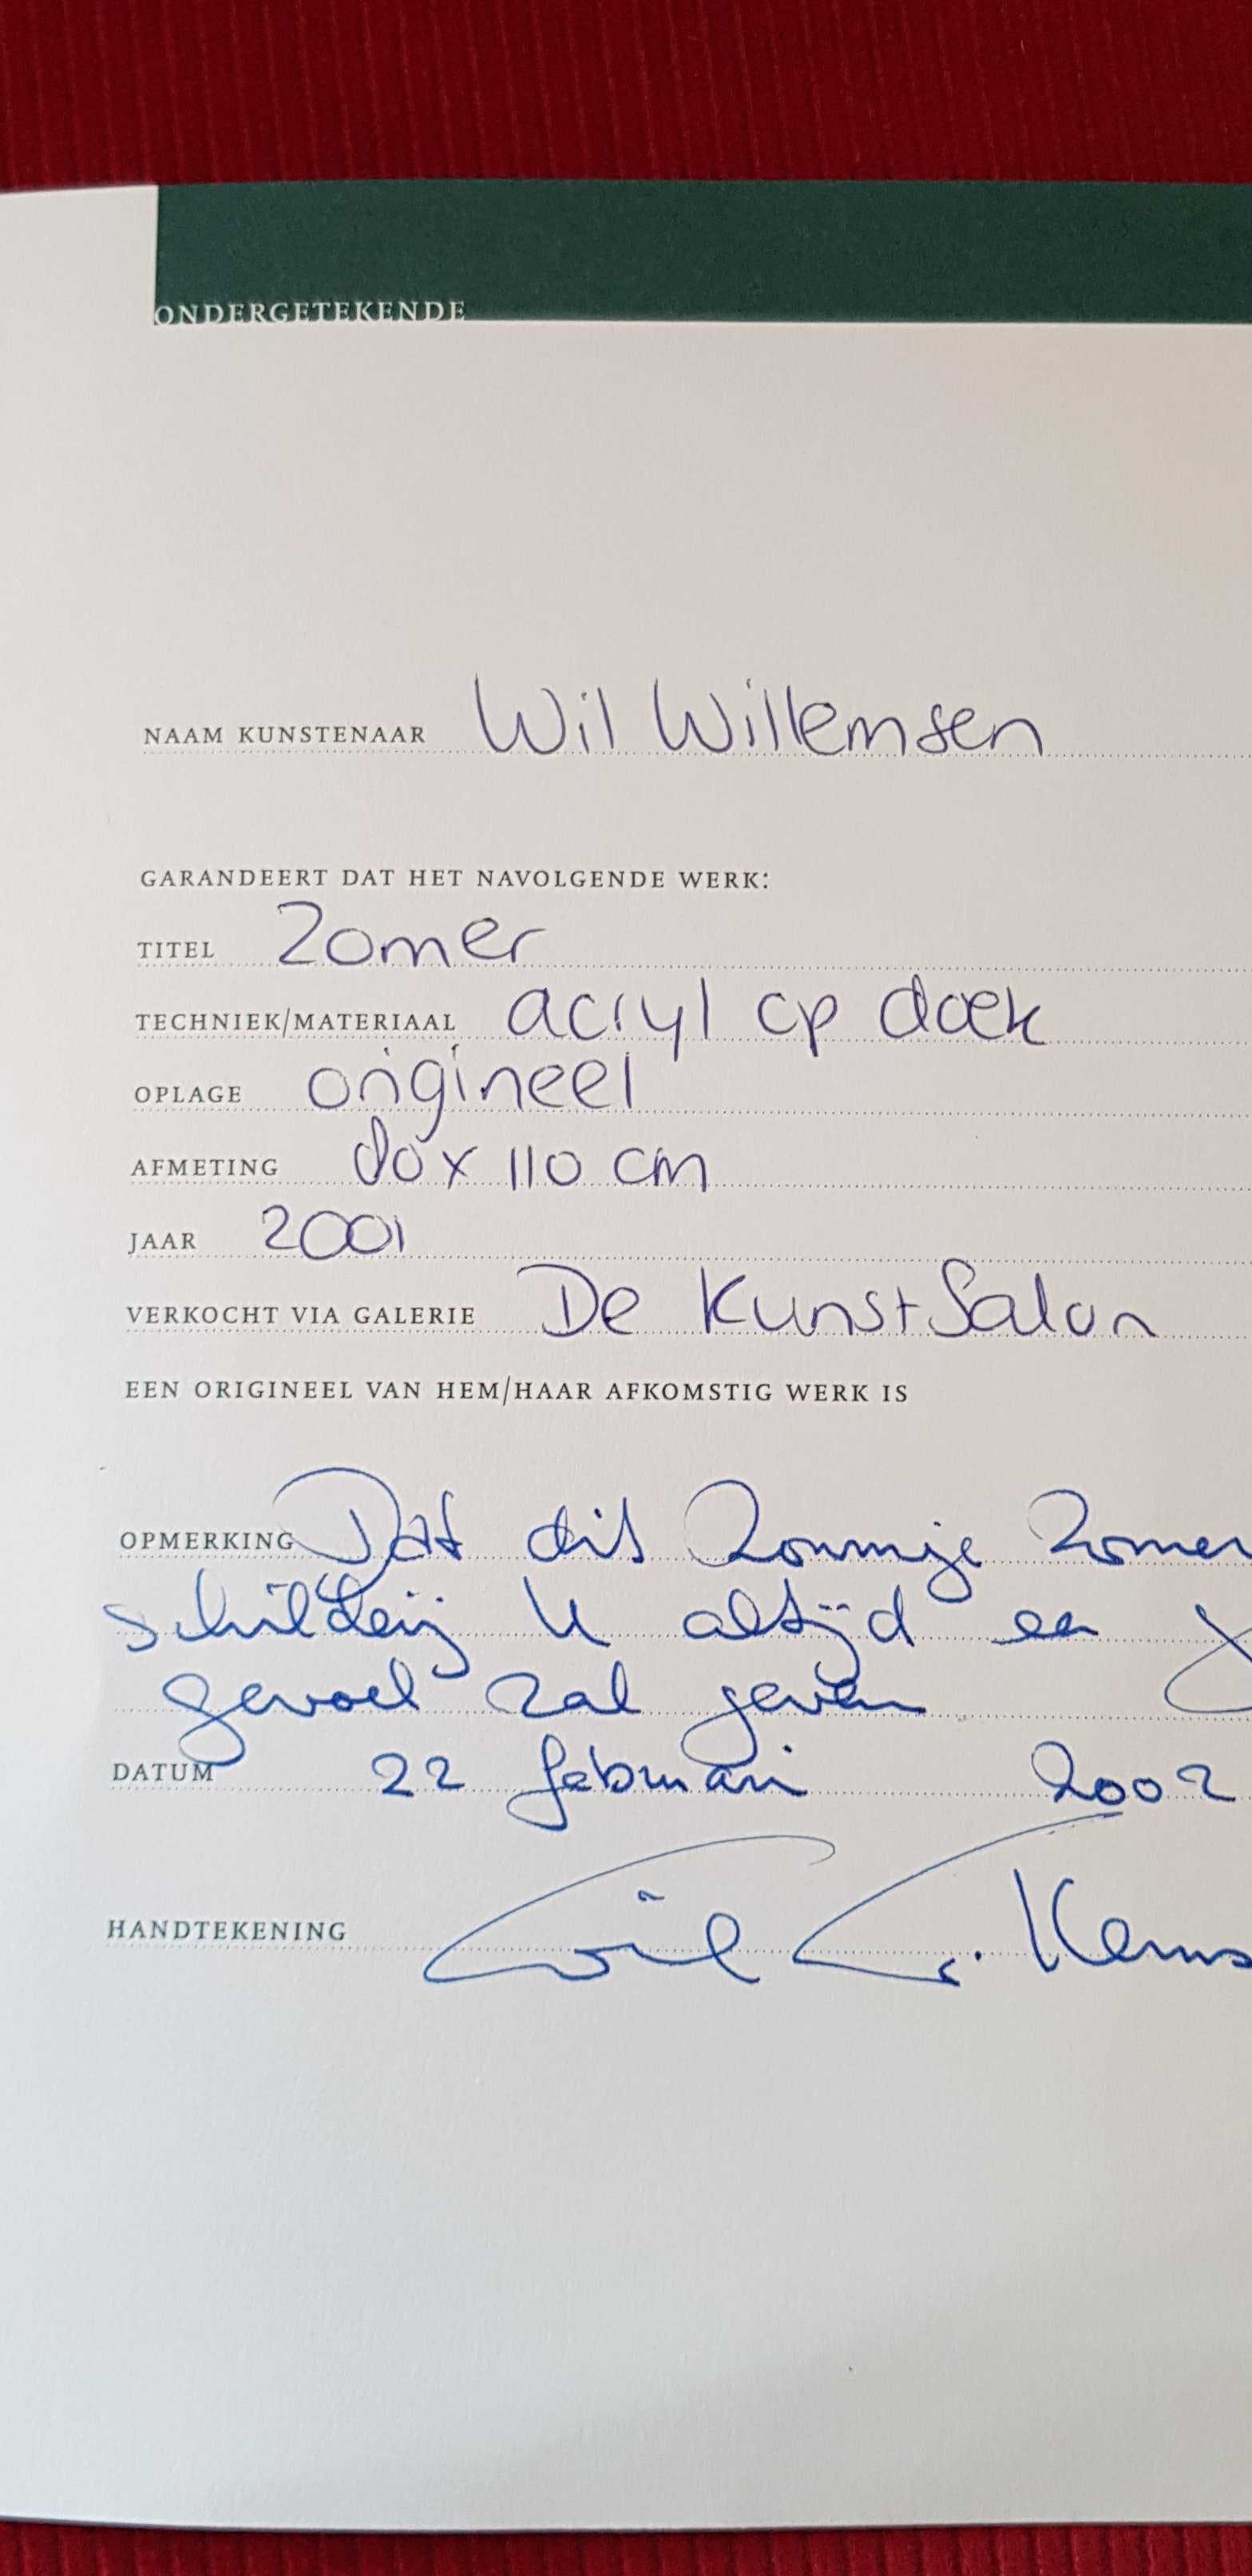 ONDERGETEKENDE
NAAM KUNSTENAAR Wil Willemsen
GARANDEERT DAT HET NAVOLGENDE WERK:
TITEL Zomer
TECHNIEK/MATERIAAL acryl op doek
OPLAGE origineel
AFMETING x 110 cm
JAAR 2001
VERKOCHT VIA GALERIE De KunstSalon
EEN ORIGINEEL VAN HEM/HAAR AFKOMSTIG WERK IS
OPMERKING Dat dit Zonnige Zomer
schilderij U altijd een
gevoel zal geven
DATUM 22 februari 2002
HANDTEKENING Wil